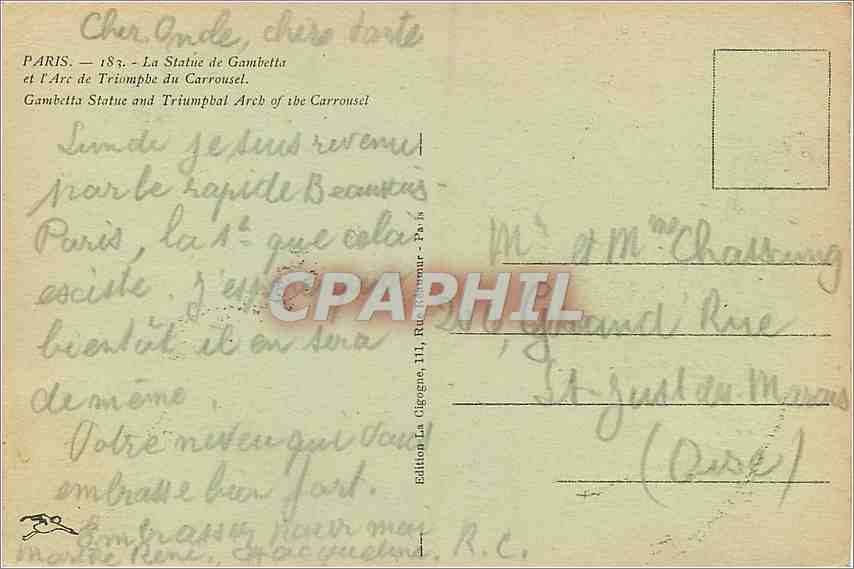 Cher Onde, chère tante
PARIS. — 183. - La Statue de Gambetta
et l'Arc de Triomphe du Carrousel.
Gambetta Statue and Triumphal Arch of the Carrousel
Lundi je suis revenu
par le rapide Beauvais-
Paris, la 1re que cela
existe. J'esp
bientôt il en sera
de même.
Votre neveu qui vous
embrasse bien fort.
Embrassez pour moi
René, Jacqueline. R. C.
Edition La Cigogne, 111, Rue Réaumur - Paris
Mr et Mme Chassaing
200, Grand' Rue
St-Just des Marais
(Oise)
CPAPHIL